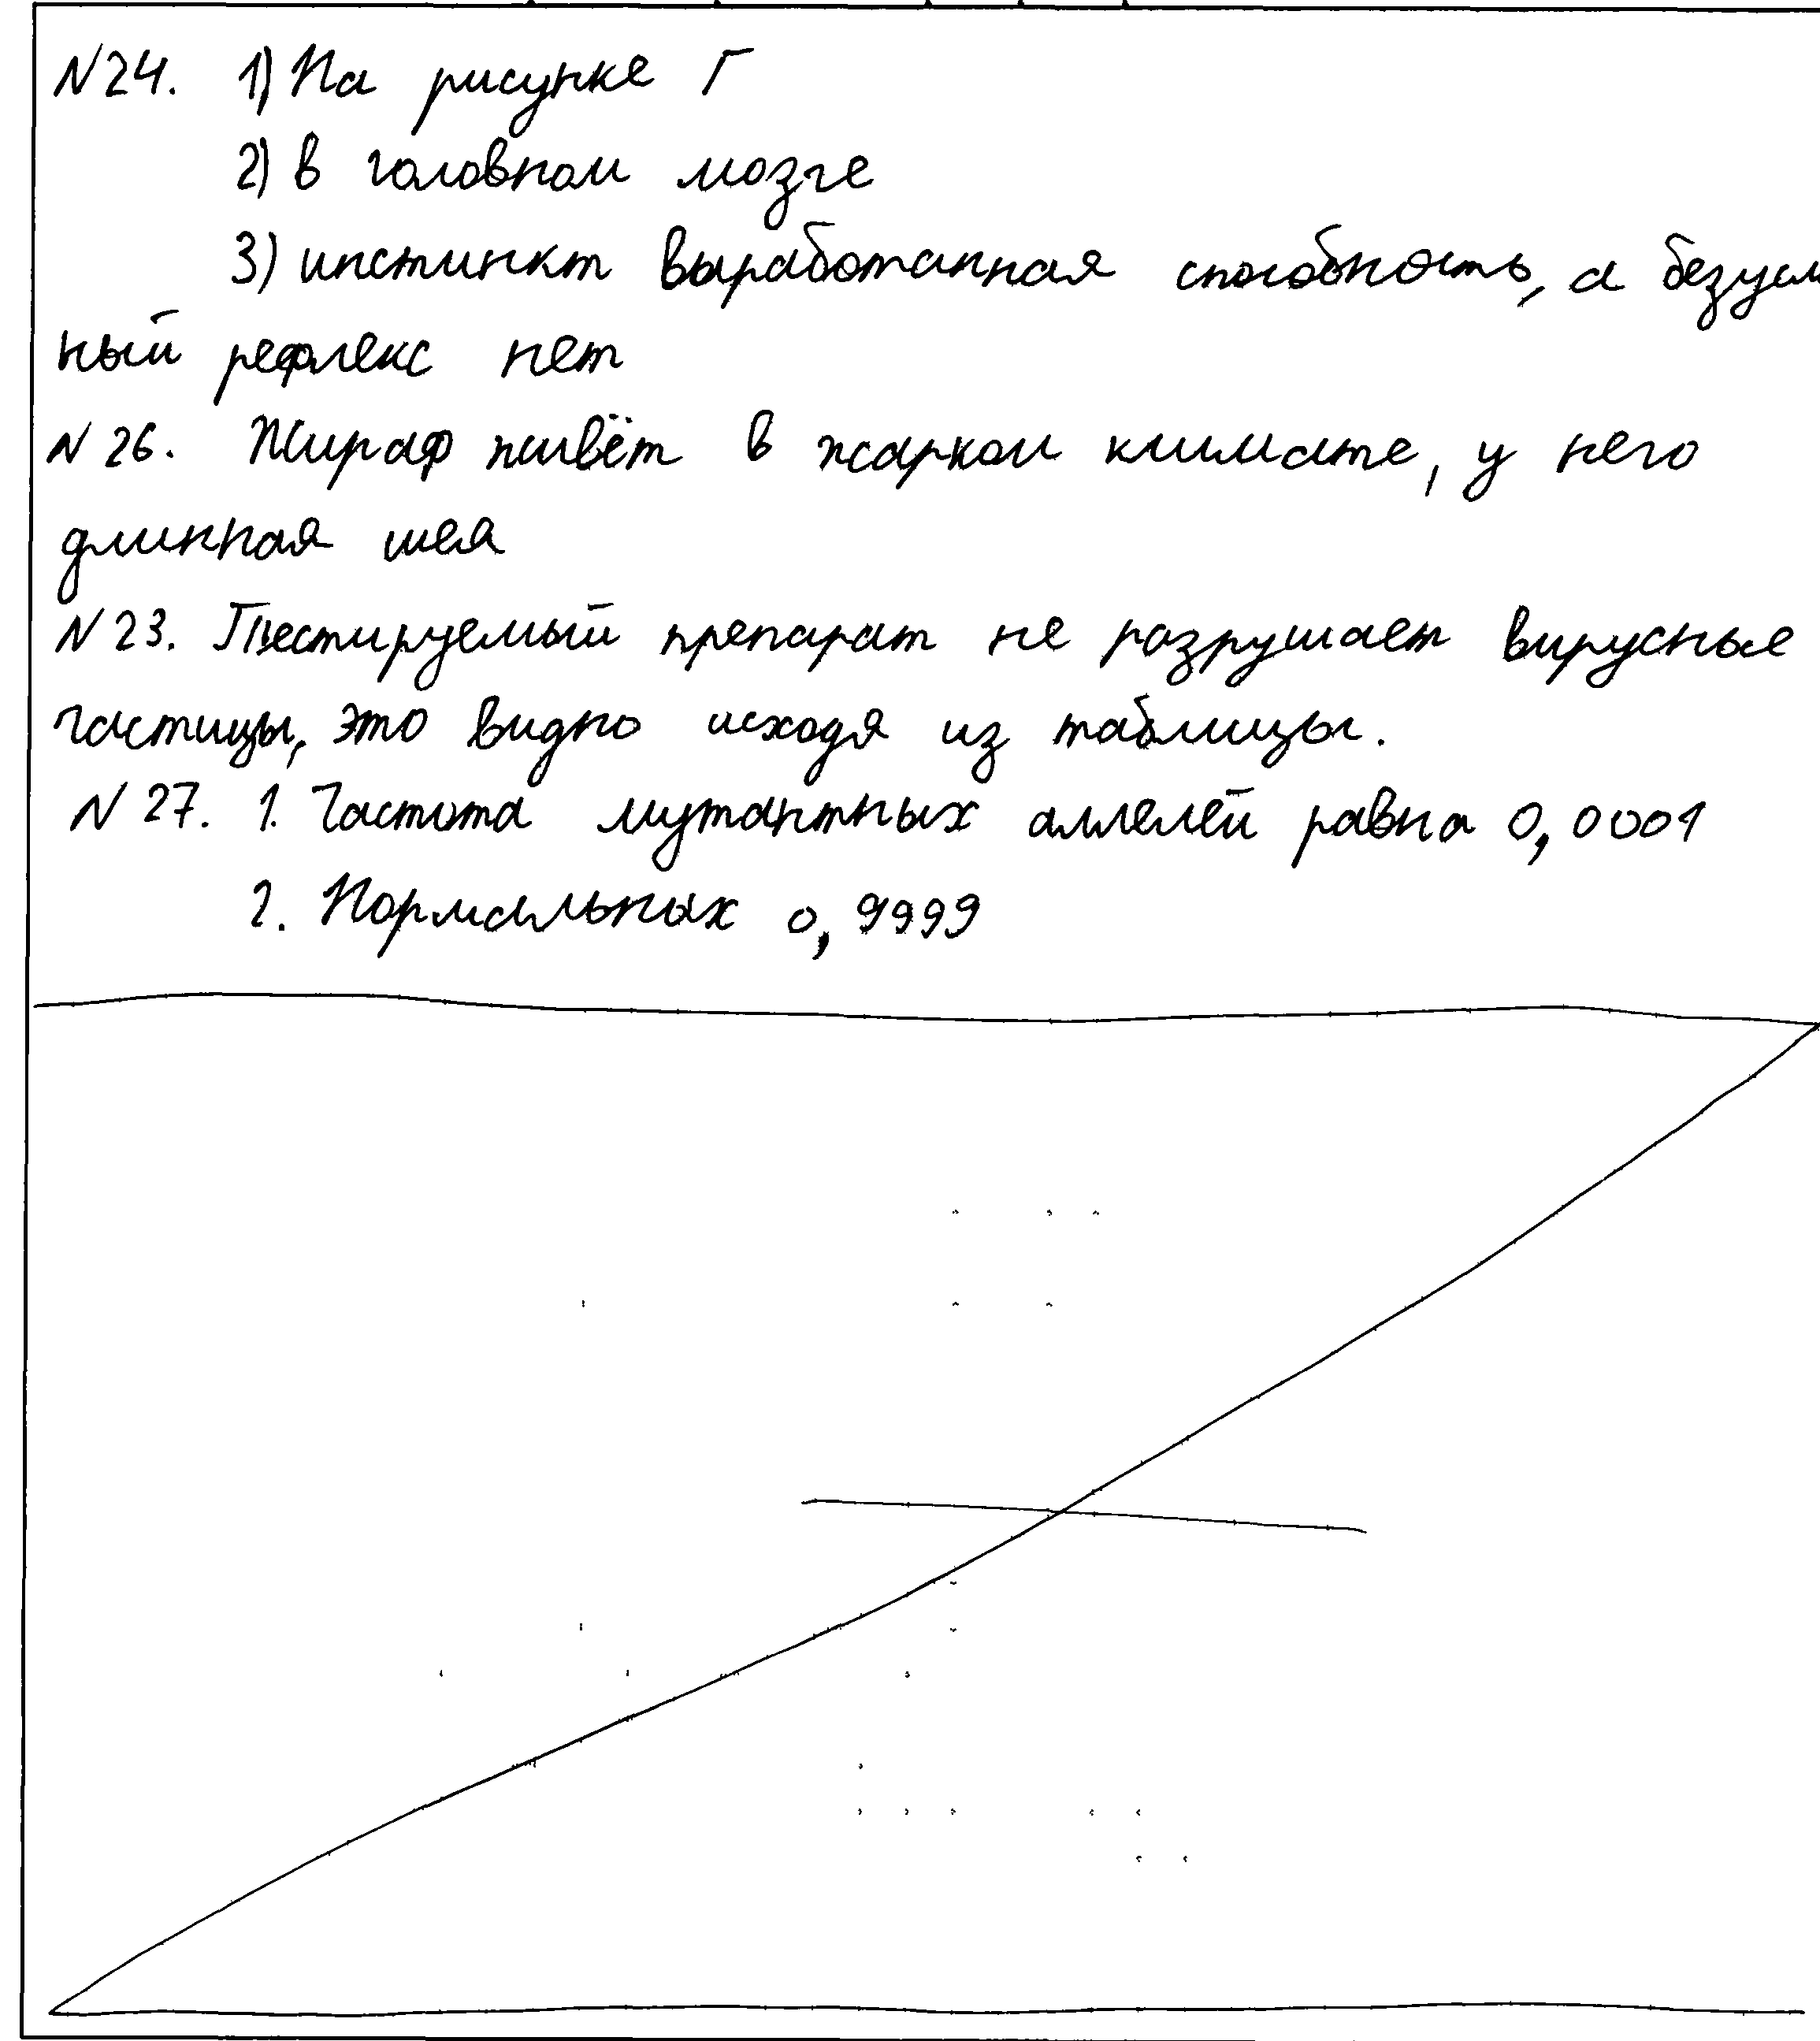 N24. 1) На рисунке Г
2) в головном мозге
3) инстинкт выработанная способность, а безусл
ный рефлекс нет
N26. Жираф живёт в жарком климате, у него
длинная шея
N23. Тестируемый препарат не разрушает вирусные
частицы, это видно исходя из таблицы.
N27. 1. Частота мутантных аллелей равна 0,0001
2. Нормальных 0,9999